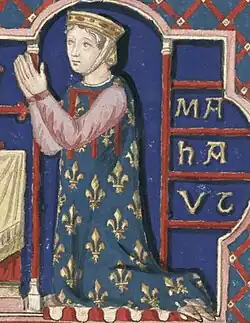 MA
hA
VT